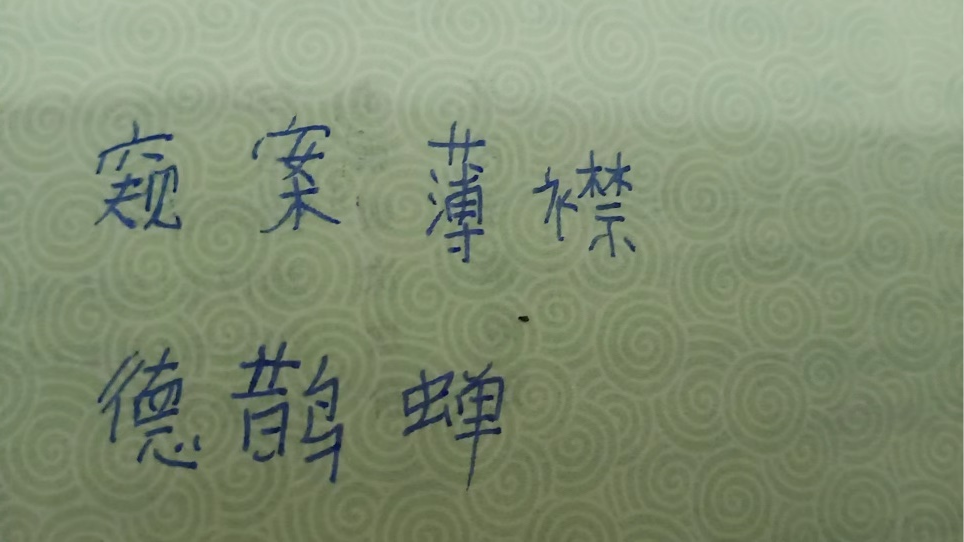 窥案薄襟
德鹊蝉